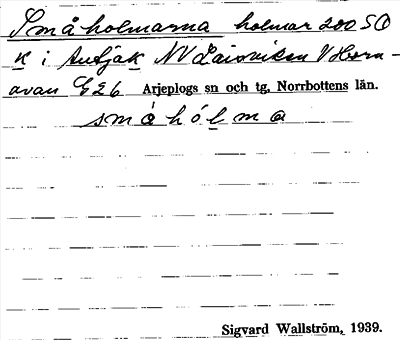 Småholmarna holmar 200 SO
K i Autjak NV Laisviken V Horn-
avan G26 Arjeplogs sn och tg, Norrbottens län.
småhólma
Sigvard Wallström, 1939.